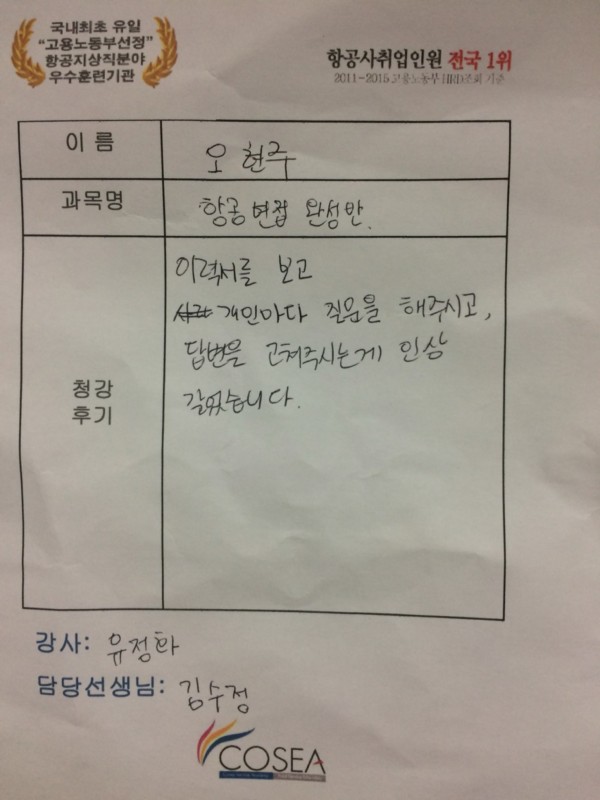 국내최초 유일
"고용노동부선정"
항공지상직분야
우수훈련기관
항공사취업인원 전국 1위
2011~2015 고용노동부 HRD조회 기준
이 름
오현주
과목명
항공면접 완성반.
청강
후기
이력서를 보고
개인마다 질문을 해주시고,
답변을 고쳐주시는게 인상
깊었습니다.
강사: 유정화
담당선생님: 김수정
COSEA